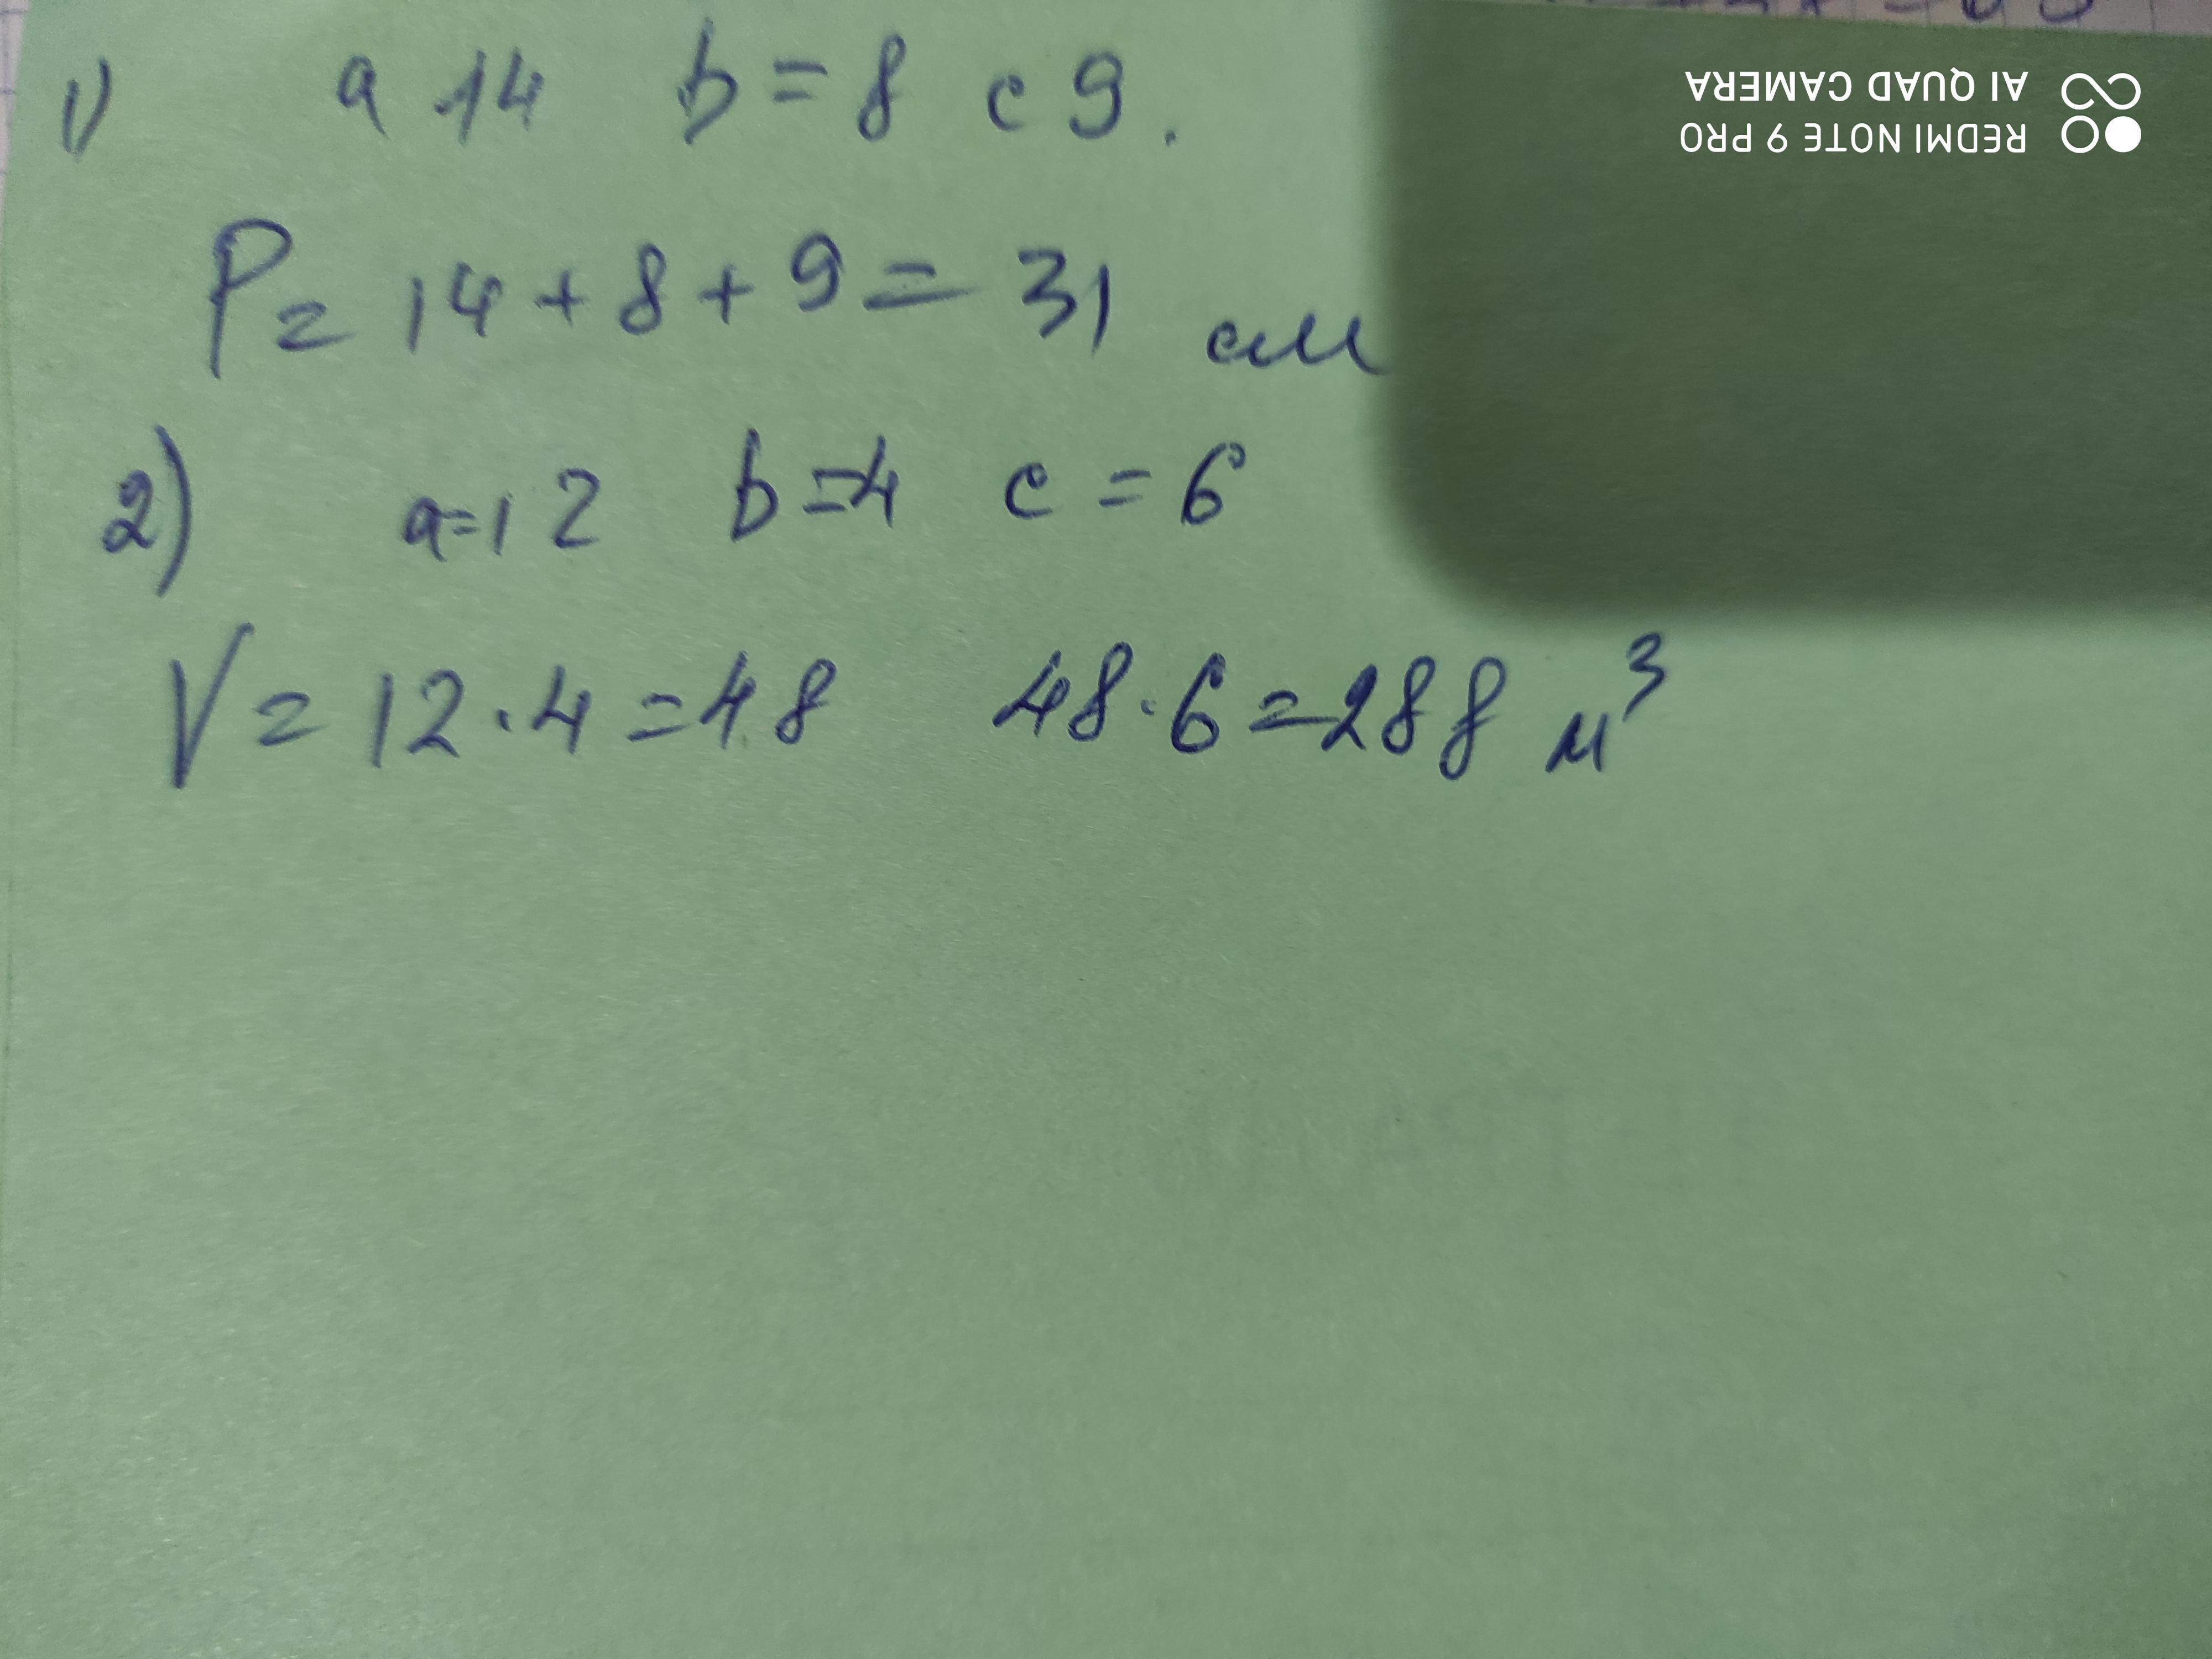 1) a 14 b = 8 c 9.
P = 14 + 8 + 9 = 31 см
2) a = 12 b = 4 c = 6
V = 12 · 4 = 48 48 · 6 = 288 м³
REDMI NOTE 9 PRO
AI QUAD CAMERA